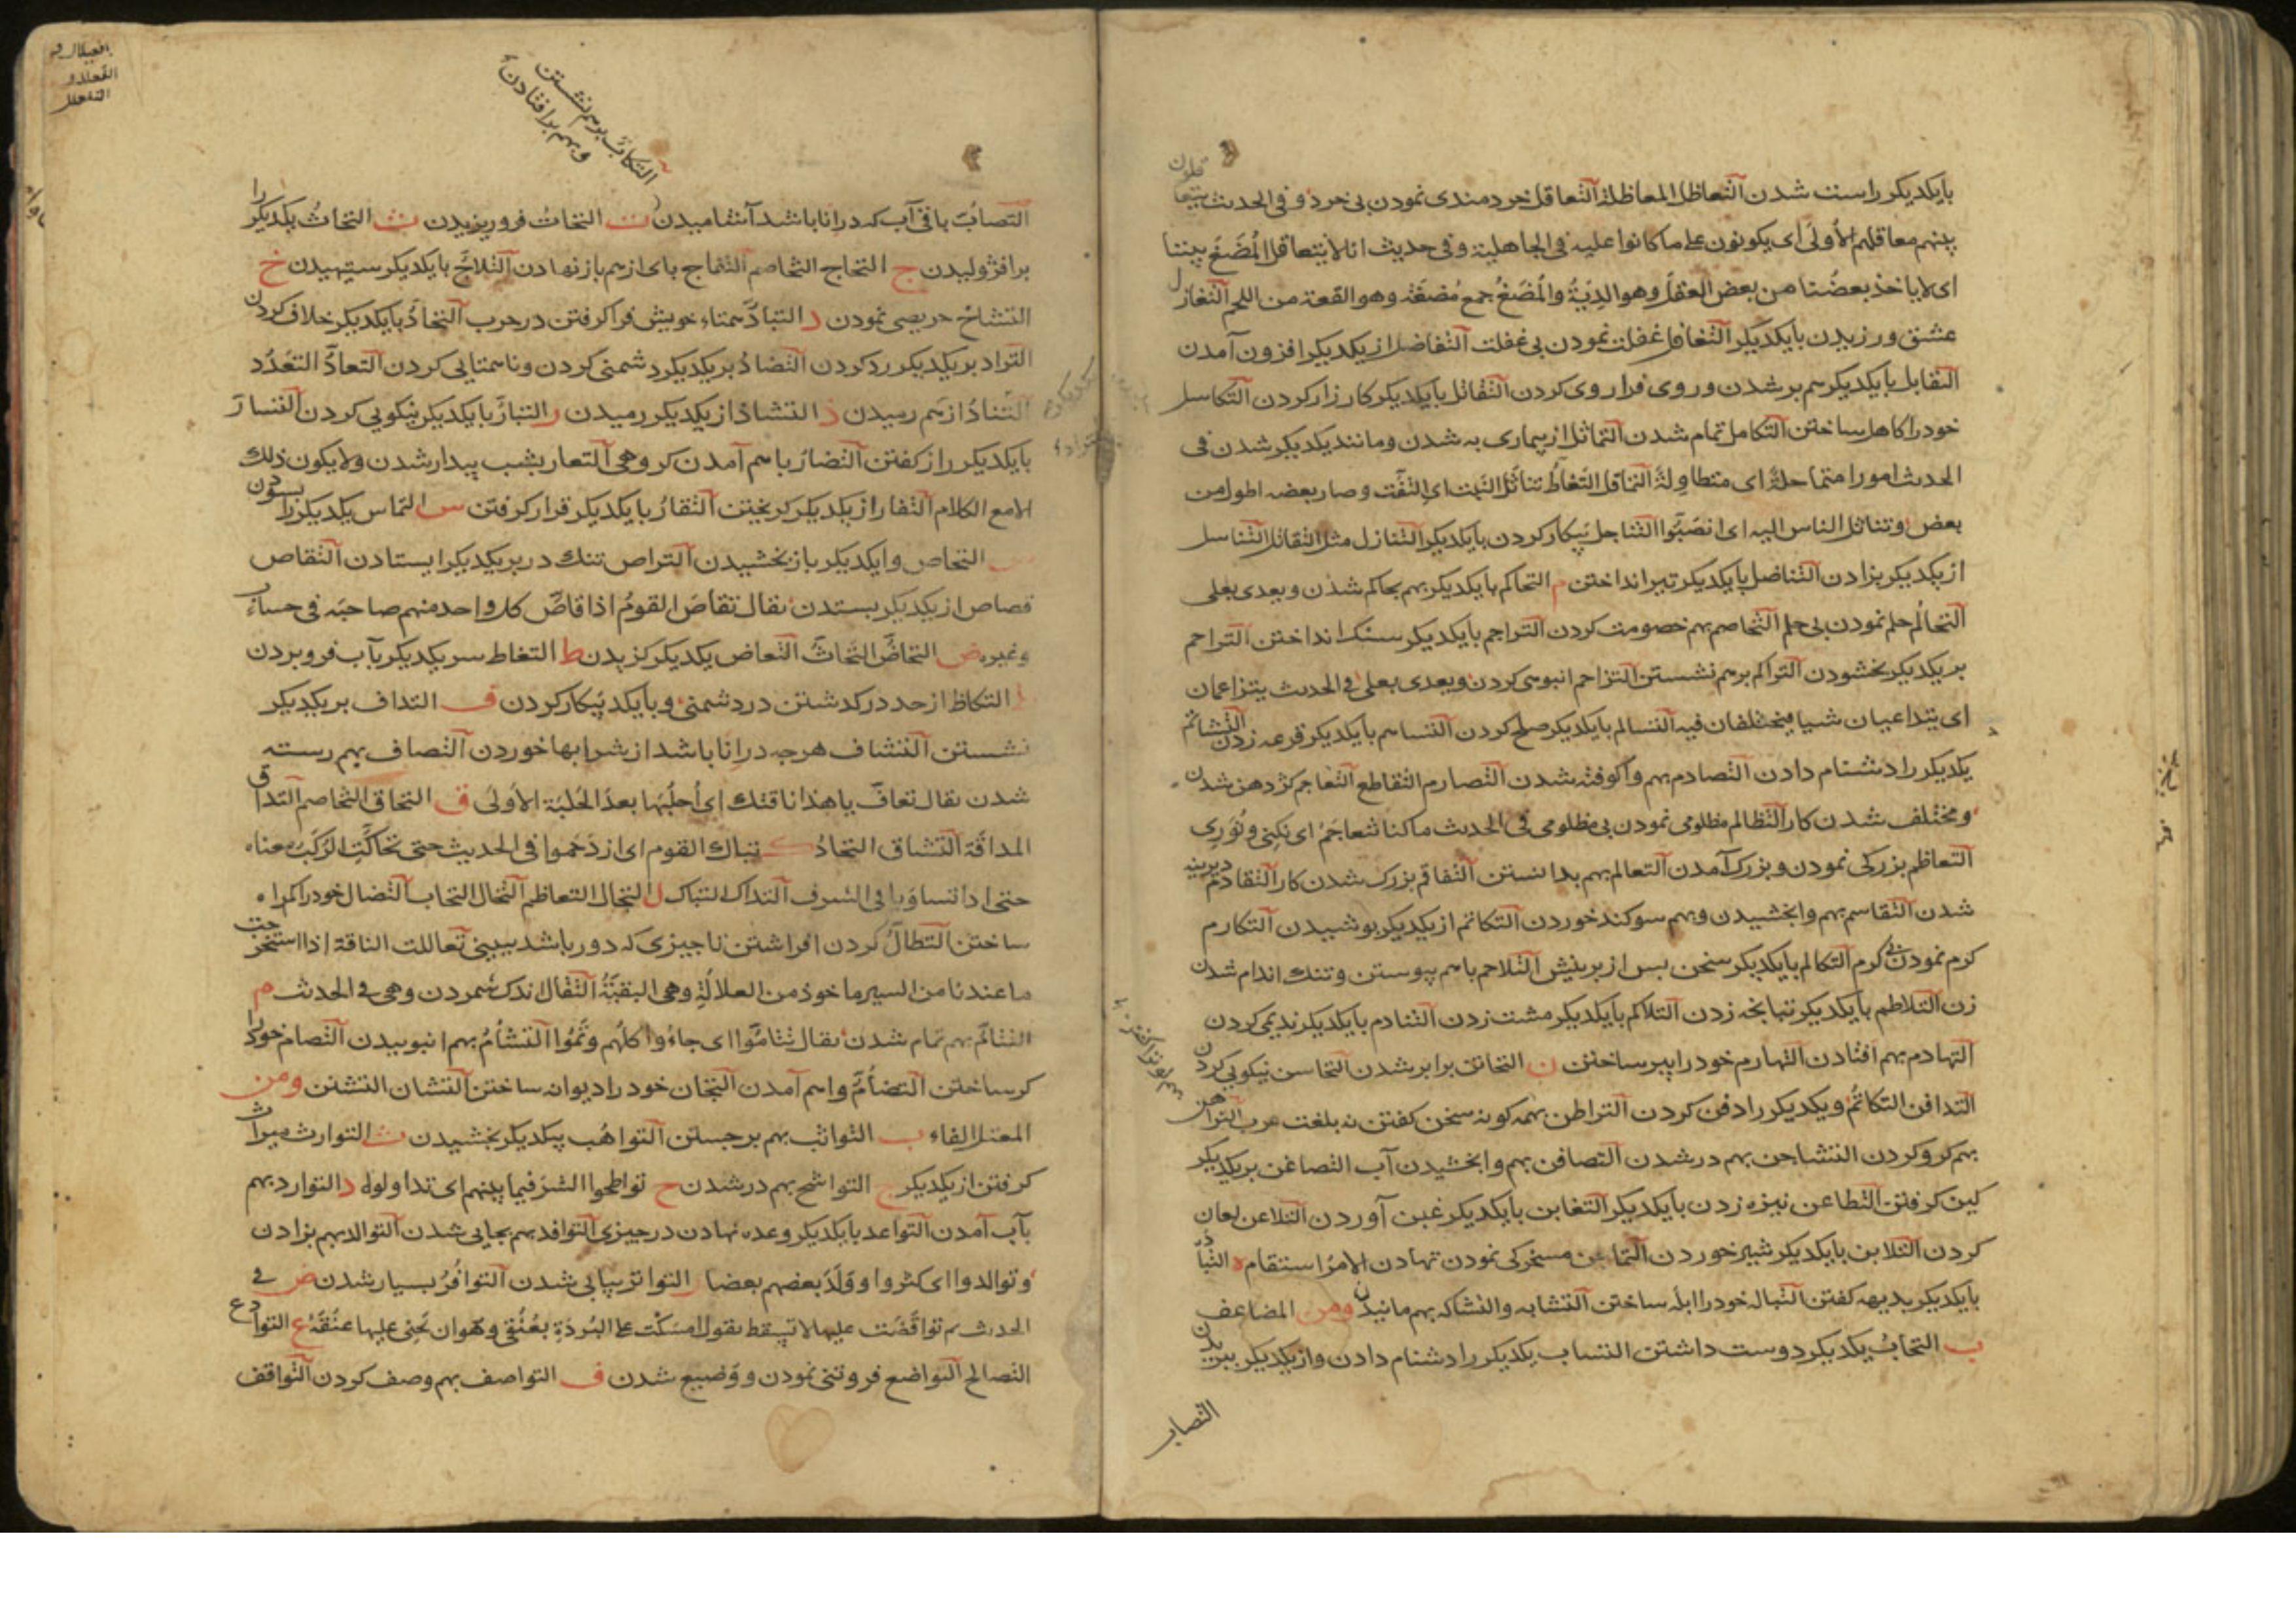 بایکدیکر راست شدن التعاظل المعاظلة التعاقل خردمندی نمودن بی خرد و فی الحدیث یتعاقلون
بینهم معاقلهم الأولی ای یکونون علی ما کانوا علیه فی الجاهلیة و فی حدیث انا لا یتعاقل المُضَغَ بیننا
ای لا یاخذ بعضُنا من بعض العقلَ وهو الدِیَةُ والمُضَغُ جمع مُضغة وهو القطعة من اللحم التغازل
عشق ورزیدن بایکدیکر التغافل غفلت نمودن بی غفلت التفاضل از یکدیکر افزون آمدن
التقابل بایکدیکر برابر شدن و روی فرا روی کردن التقاتل بایکدیکر کارزار کردن التکاسل
خود را کاهل ساختن التکامل تمام شدن التماثل از بیماری به شدن و مانند یکدیکر شدن فی
الحدیث امورا متماحلة ای متطاولة التناقل التعاطُ تناتَل النبت ای التفّت و صار بعضه اطول من
بعض و تناتل الناس الیه ای انصَبّوا التناجل پیکار کردن بایکدیکر التنازل مثل التقاتل التناسل
از یکدیکر بزادن التناضل بایکدیکر تیر انداختن م التحاکم بایکدیکر بهم بحاکم شدن و یعدی بعلی
التحالُم حلم نمودن بی حلم التخاصم بهم خصومت کردن التراجم بایکدیکر سنک انداختن التراحم
بر یکدیکر بخشودن التراکم برهم نشستن التزاحم انبوهی کردن و یعدی بعلی فی الحدیث یتزاعمان
ای یتداعیان شیا فیختلفان فیه التسالم بایکدیکر صلح کردن التساهم بایکدیکر قرعه زدن التشاتم
یکدیکر را دشنام دادن التصادم بهم واکوفته شدن التصارم التقاطع التعاجم کژ دهن شدن
و مختلف شدن کار التظالم مظلومی نمودن بی مظلومی فی الحدیث ما کنا نتعاجَمُ ای نُکنی و نُوَرِی
التعاظم بزرکی نمودن و بزرک آمدن التعالم بهم بدانستن التفاقم بزرک شدن کار التقادم دیرینه
شدن التقاسم بهم وابخشیدن و بهم سوکند خوردن التکاتم از یکدیکر بوشیدن التکارم
کرم نمودن بی کرم التکالم بایکدیکر سخن بس از برینش التلاحم باهم پیوستن و تنک اندام شدن
زن التلاطم بایکدیکر تبانجه زدن التلاکم بایکدیکر مشت زدن التنادم بایکدیکر ندیمی کردن
التهادم بهم افتادن التهارم خود را پیر ساختن ن التحاتن برابر شدن التحاسن نیکویی کردن
التدافن التکاتُم و یکدیکر را دفن کردن التراطن بهمه کونه سخن کفتن نه بلغت عرب التراهن
بهم کرو کردن التشاجن بهم در شدن التصافن بهم وابخشیدن آب التضاغن بر یکدیکر
کین کرفتن التطاعن نیزه زدن بایکدیکر التغابن بایکدیکر غبن آوردن التلاعن لعان
کردن التلابن بایکدیکر شیر خوردن التماجن مسخرکی نمودن تهادن الامرُ استقام ه التبادُه
بایکدیکر بدیهه کفتن التباله خود را ابله ساختن التشابه والتشاکه بهم مانیدن ومن المضاعف
ب التحابُ یکدیکر دوست داشتن التساب یکدیکر را دشنام دادن و از یکدیکر ببریدن
التصاب
التکابّ برهم نشستن
و بهم برافتادن
التصابّ باقی آب که در اناباشد آشامیدن ت التحاتُ فرو ریزیدن ث التحاثُ یکدیکر را
برافژولیدن ج التحاج التخاصم التفاج پای از هم باز نهادن التلاجّ بایکدیکر ستیهیدن خ
التشاخ حریصی نمودن د التبادّ همتاء خویش فرا کرفتن در حرب التحادُ بایکدیکر خلاف کردن
التراد بر یکدیکر رد کردن التضادُ بر یکدیکر دشمنی کردن و ناهمتایی کردن التعادُّ التعَدُد
التنادُ از هم رمیدن ذ التشاذ از یکدیکر رمیدن ر التبارُ بایکدیکر نیکویی کردن التسارَ
بایکدیکر راز کفتن التضارُ باهم آمدن کروهی التعار بشب بیدار شدن ولا یکون ذلک
الا مع الکلام التفار از یکدیکر کریختن التقارُ بایکدیکر قرار کرفتن س التماس یکدیکر را بسودن
التحاص وا یکدیکر باز بخشیدن التراص تنک در بر یکدیکر ایستادن التقاص
قصاص از یکدیکر بستدن یقال تقاصَ القومُ اذا قاصّ کل واحد منهم صاحبَه فی حساب
و غیره ض التحاضَّ التحاثَّ التعاض یکدیکر کزیدن ط التغاط سر یکدیکر بآب فرو بردن
التکاظ از حد در کذشتن در دشمنی و بایکد پیکار کردن ف التداف بر یکدیکر
نشستن التشاف هرچه در اناباشد از شرابها خوردن التصاف بهم رسته
شدن یقال تعافّ یا هذا ناقتک ای اُحلُبها بعدَ الحَلبَة الأولیٰ ق التحاق التخاصم التداق
المداقّة التشاق التحادُ ک تباک القوم ای ازدَحَموا فی الحدیث حتی تحاکّتِ الرُکَبُ معناه
حتی اذا تساوَینا فی الشرف التداک التباک ل التجال التعاظم التخال التحاب التضال خود را کمراه
ساختن التطالّ کردن افراشتن تا جیزی که دور باشد ببینی تعاللت الناقة اذا استخرجت
ما عندنا من السیر ماخوذ من العلالة وهی البقیّةُ التقالّ اندک شمردن وهی فی الحدیث م
التتامّ بهم تمام شدن یقال تتامّوا ای جاءُوا کلُهم وتَمُّوا التشامُّ بهم انبوییدن التصام خود را
کر ساختن التضامّ واهم آمدن التجان خود را دیوانه ساختن التشان التشنن ومن
المعتل الفاء ب التواثب بهم برجستن التواهُب پیکدیکر بخشیدن ث التوارث میراث
کرفتن از یکدیکر ج التواشج بهم در شدن ح تواطحوا الشرَ فیما بینهم ای تداولوه د التوارد بهم
بآب آمدن التواعد بایکدیکر وعده نهادن در جیزی التوافد بهم بجایی شدن التوالد بهم بزادن
و توالدوا ای کثروا و وَلَدَ بعضهم بعضا ر التواتر پیاپی شدن التوافُرُ بسیار شدن ص فی
الحدیث ثم تواقصت علیها لا تسقط یقول امسَکْت علی البُردَةِ بعُنُقی وهوان یَحنی علیها عنُقَهُ ع التوادع
التصالح التواضع فروتنی نمودن و وَضیع شدن ف التواصف بهم وصف کردن التواقف